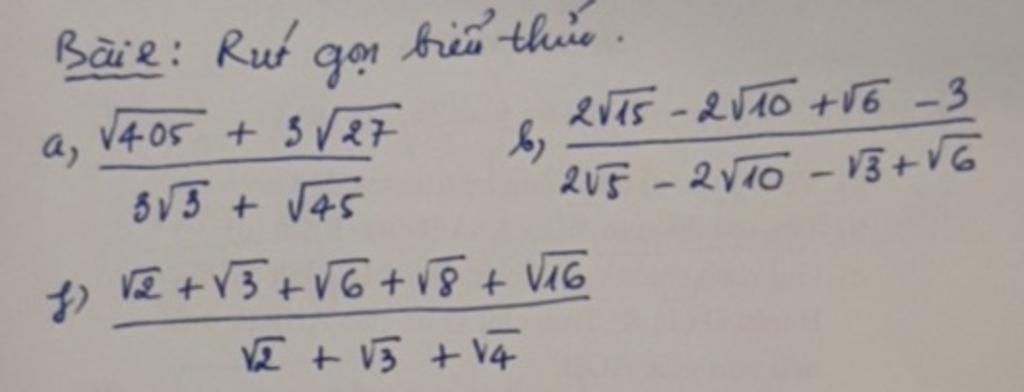 Bài 2: Rút gọn biểu thức.
a, (√405 + 3√27) / (3√3 + √45) b, (2√15 - 2√10 + √6 - 3) / (2√5 - 2√10 - √3 + √6)
f) (√2 + √3 + √6 + √8 + √16) / (√2 + √3 + √4)